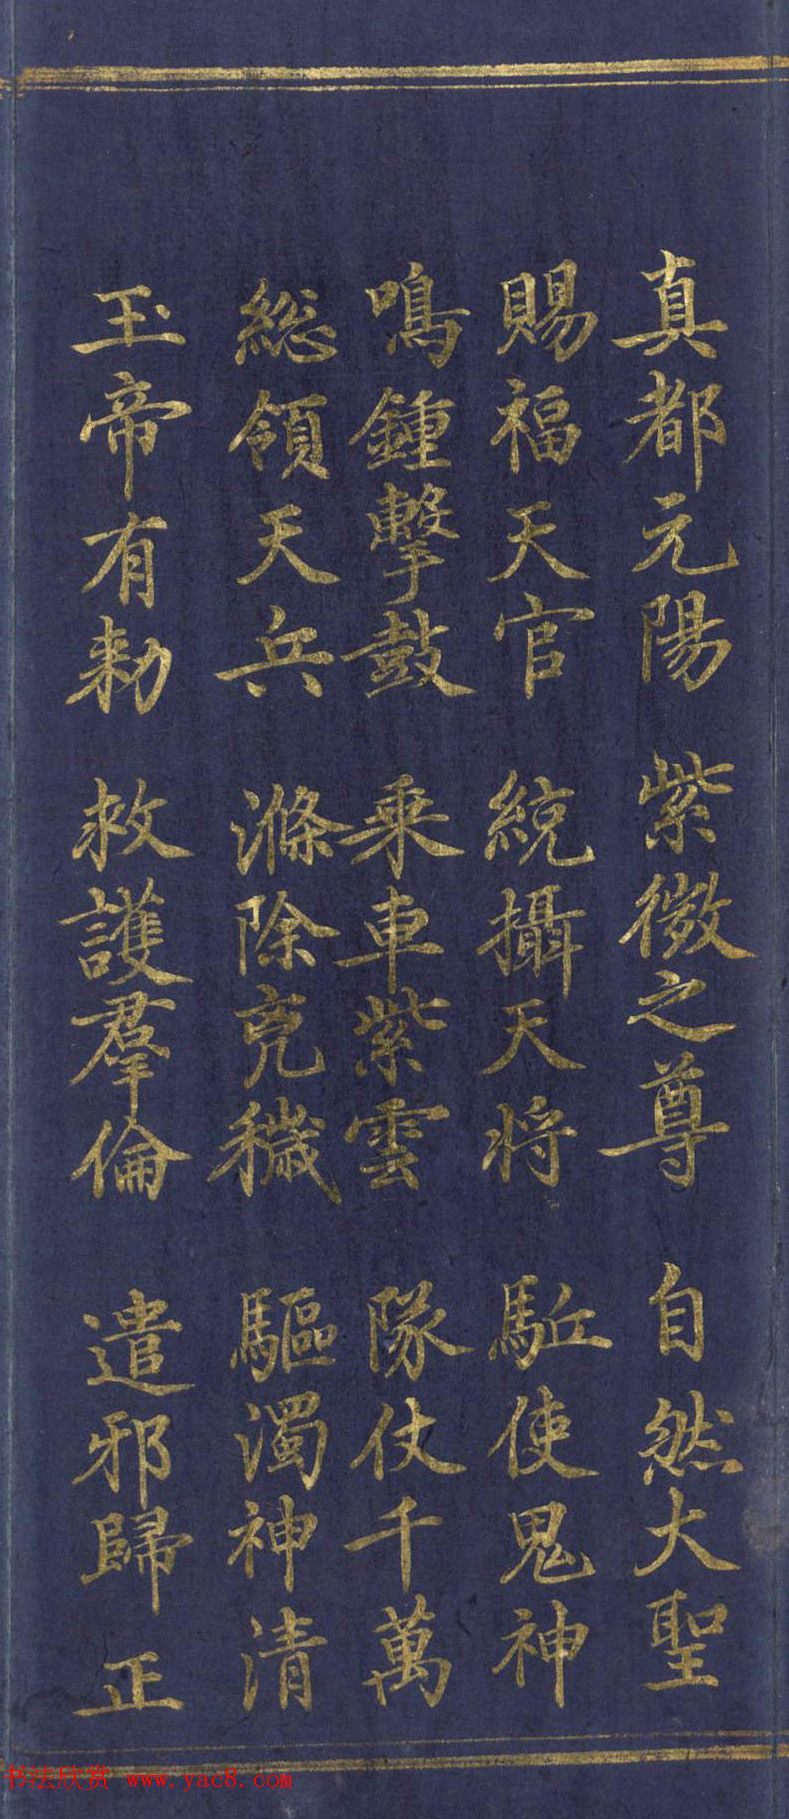 真都元陽 紫微之尊 自然大聖
賜福天官 統攝天将 駈使鬼神
鳴鍾擊鼓 乗車紫雲 隊仗千萬
緫領天兵 滌除兇穢 驅濁神清
玉帝有勑 救護羣倫 遣邪歸正
书法欣赏 www.yac8.com